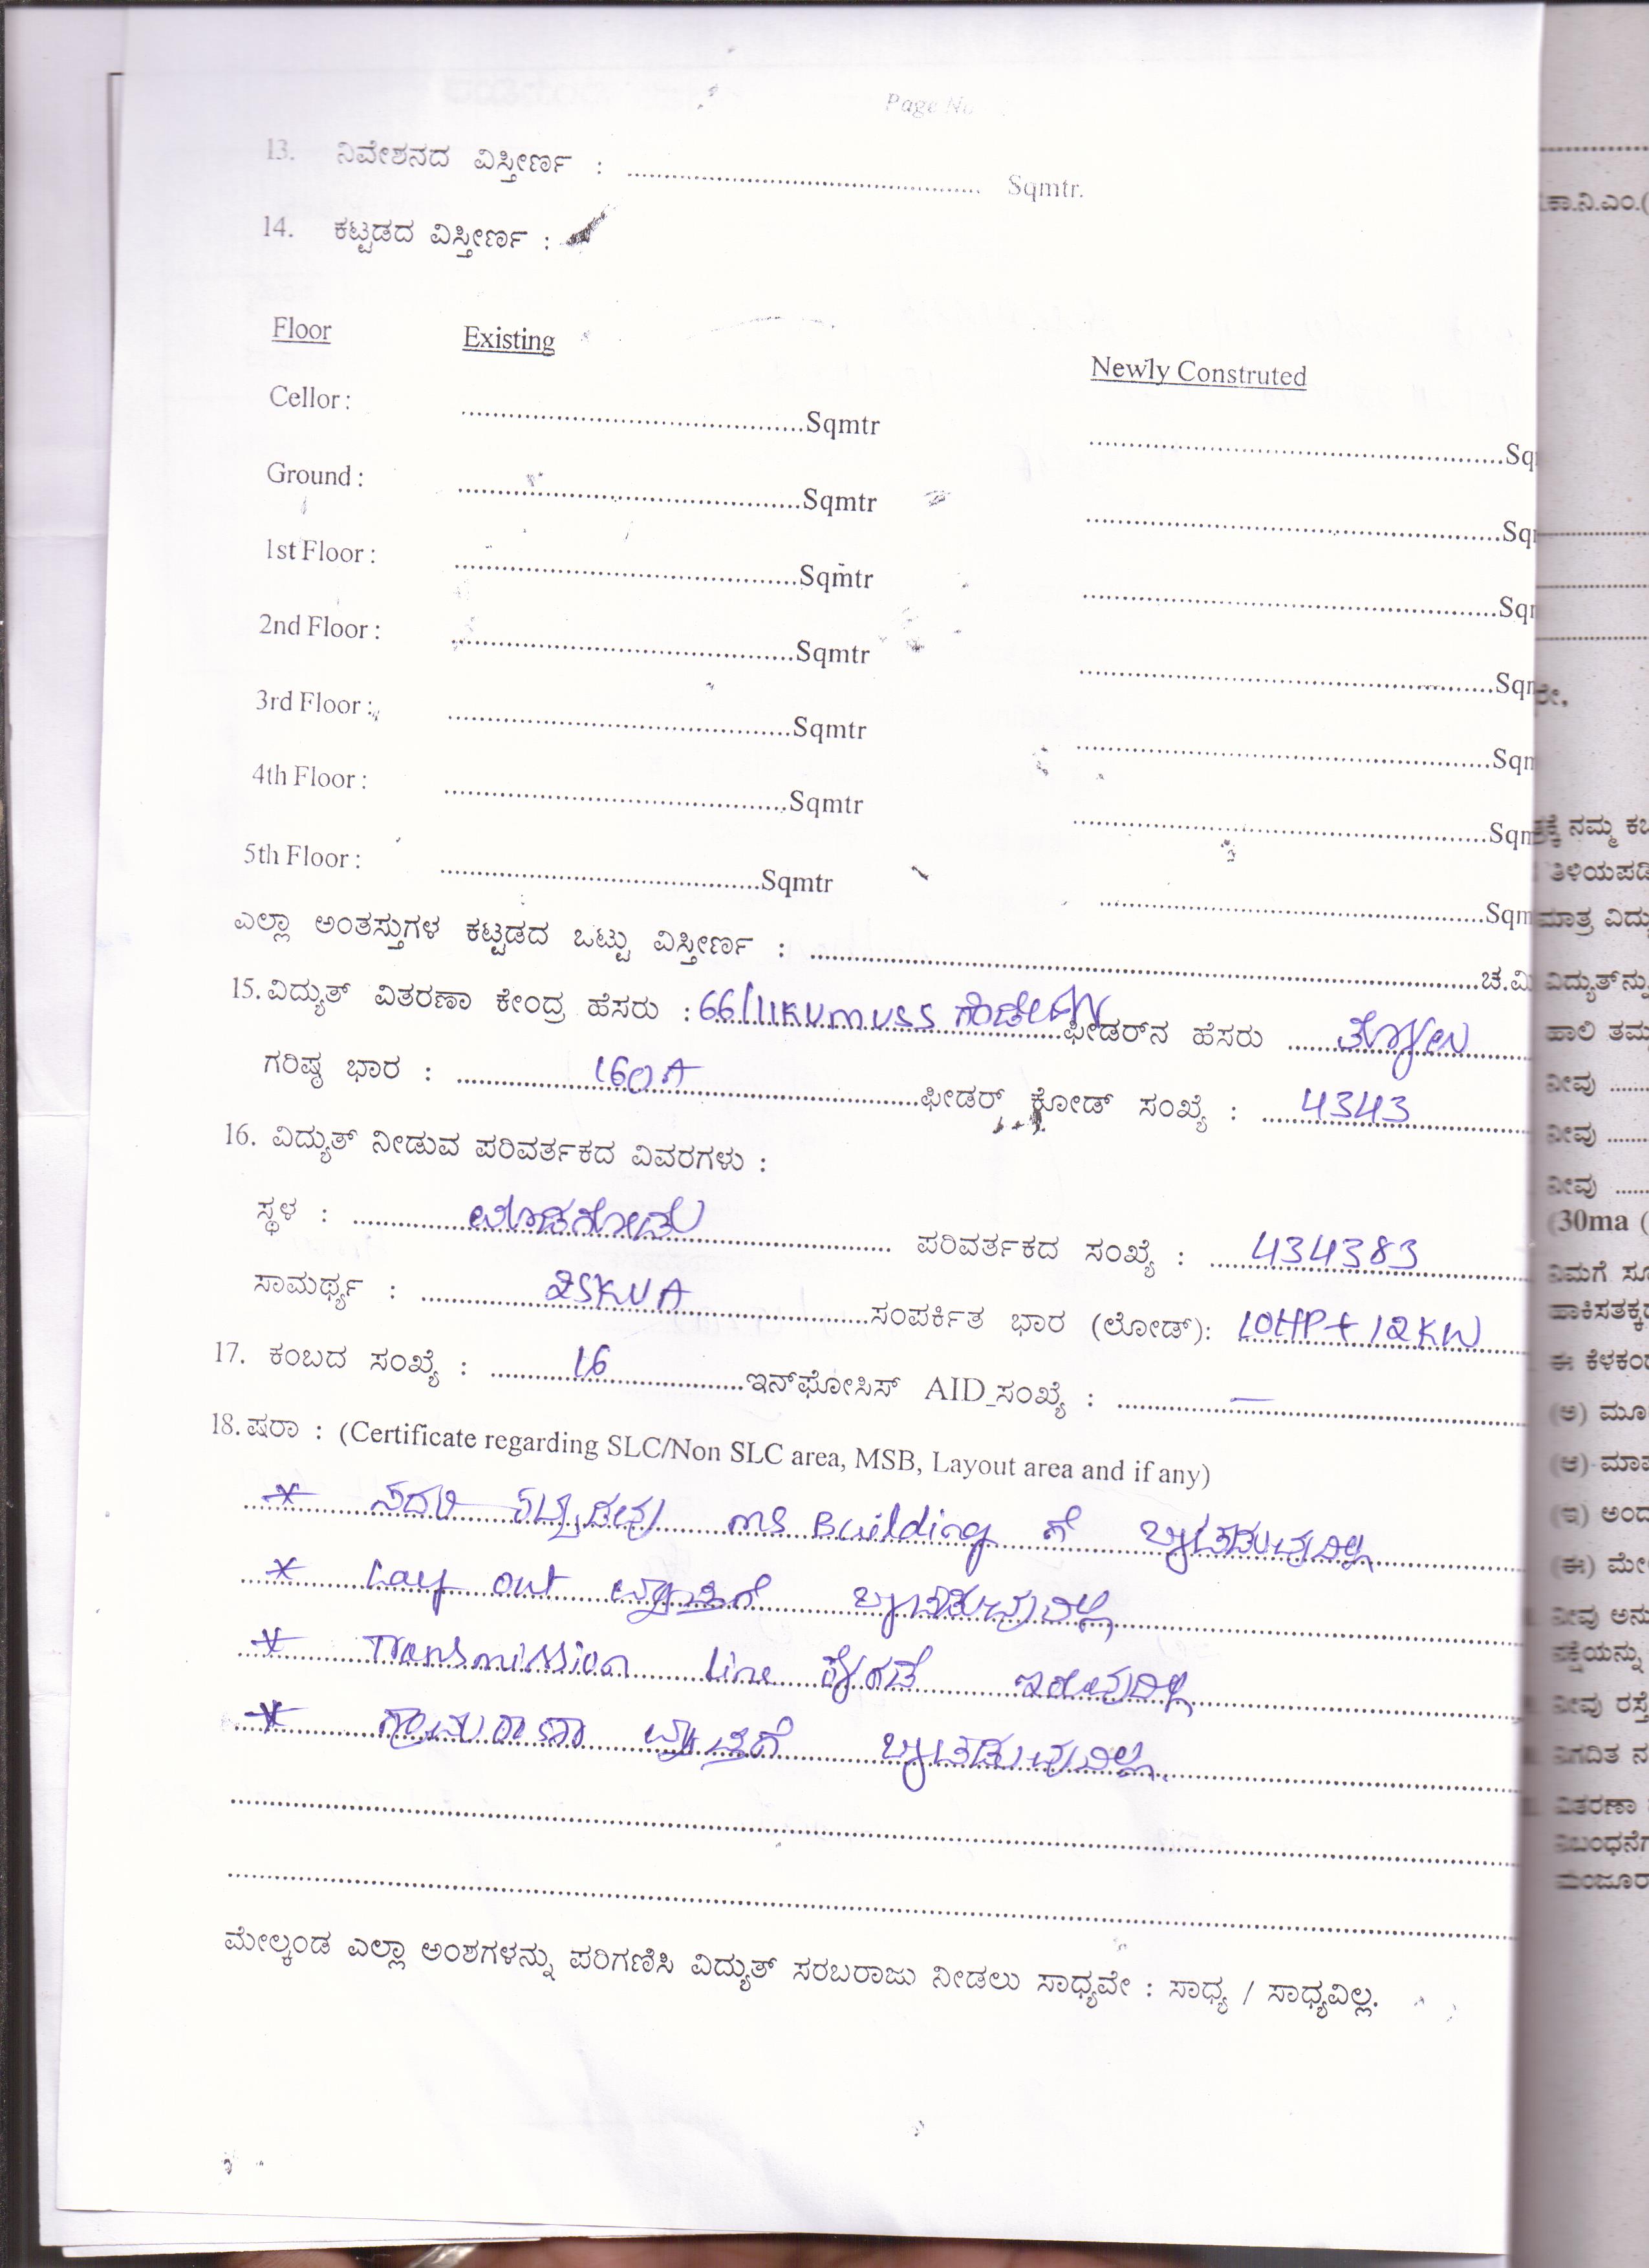 Page No
13. ನಿವೇಶನದ ವಿಸ್ತೀರ್ಣ : ............ Sqmtr.
14. ಕಟ್ಟಡದ ವಿಸ್ತೀರ್ಣ :
Floor Existing Newly Construted
Cellor : ............Sqmtr ............Sq
Ground : ............Sqmtr ............Sq
1st Floor : ............Sqmtr ............Sq
2nd Floor : ............Sqmtr ............Sq
3rd Floor : ............Sqmtr ............Sq
4th Floor : ............Sqmtr ............Sqm
5th Floor : ............Sqmtr ............Sqm
ಎಲ್ಲಾ ಅಂತಸ್ತುಗಳ ಕಟ್ಟಡದ ಒಟ್ಟು ವಿಸ್ತೀರ್ಣ : ............ಚ.ಮಿ
15. ವಿದ್ಯುತ್ ವಿತರಣಾ ಕೇಂದ್ರ ಹೆಸರು : 66/11KV MUSS ಫೀಡರ್‌ನ ಹೆಸರು
ಗರಿಷ್ಠ ಭಾರ : 160A ಫೀಡರ್ ಕೋಡ್ ಸಂಖ್ಯೆ : 4343
16. ವಿದ್ಯುತ್ ನೀಡುವ ಪರಿವರ್ತಕದ ವಿವರಗಳು :
ಸ್ಥಳ : ............ ಪರಿವರ್ತಕದ ಸಂಖ್ಯೆ : 434383
ಸಾಮರ್ಥ್ಯ : 25KVA ಸಂಪರ್ಕಿತ ಭಾರ (ಲೋಡ್): 10HP+12KW
17. ಕಂಬದ ಸಂಖ್ಯೆ : 16 ಇನ್‌ಫೋಸಿಸ್ AID ಸಂಖ್ಯೆ : —
18. ಷರಾ : (Certificate regarding SLC/Non SLC area, MSB, Layout area and if any)
* ಸದರಿ ಕಟ್ಟಡವು MS Building ಗೆ ಒಳಪಡುವುದಿಲ್ಲ
* Lay out ವ್ಯಾಪ್ತಿಗೆ ಒಳಪಡುವುದಿಲ್ಲ
* Transmission line ಕೆಳಗಡೆ ಇರುವುದಿಲ್ಲ
* ಗ್ರಾಮಠಾಣಾ ವ್ಯಾಪ್ತಿಗೆ ಒಳಪಡುವುದಿಲ್ಲ.
ಮೇಲ್ಕಂಡ ಎಲ್ಲಾ ಅಂಶಗಳನ್ನು ಪರಿಗಣಿಸಿ ವಿದ್ಯುತ್ ಸರಬರಾಜು ನೀಡಲು ಸಾಧ್ಯವೇ : ಸಾಧ್ಯ / ಸಾಧ್ಯವಿಲ್ಲ.
ಕಾ.ನಿ.ಎಂ.(
ನಮ್ಮ
ತಿಳಿಯಪಡಿ
ಮಾತ್ರ ವಿದ್ಯು
ವಿದ್ಯುತ್‌ನ್ನು
ಹಾಲಿ ತಮ
ನೀವು
ನೀವು
ನೀವು
(30ma (
ನಿಮಗೆ ಸೂ
ಹಾಕಿಸತಕ್ಕ
ಈ ಕೆಳಕಂಡ
(ಅ) ಮೂ
(ಆ) ಮಾಪ
(ಇ) ಅಂದ
(ಈ) ಮೇ
ನೀವು ಅನು
ನಕ್ಷೆಯನ್ನು
ನೀವು ರಸ್ತೆ
ನಿಗದಿತ ನ
ವಿತರಣಾ
ನಿಬಂಧನೆಗ
ಮಂಜೂರ